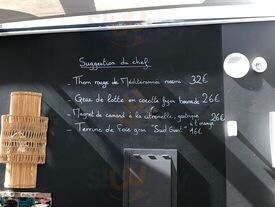 Suggestion du chef
- Thon rouge de Méditerranée rossini 32€
- Queue de lotte en cocotte façon 26€
- Magret de canard à la citronnelle, 26€
- Terrine de Foie gras "Sud Ouest" à l'orange
16€